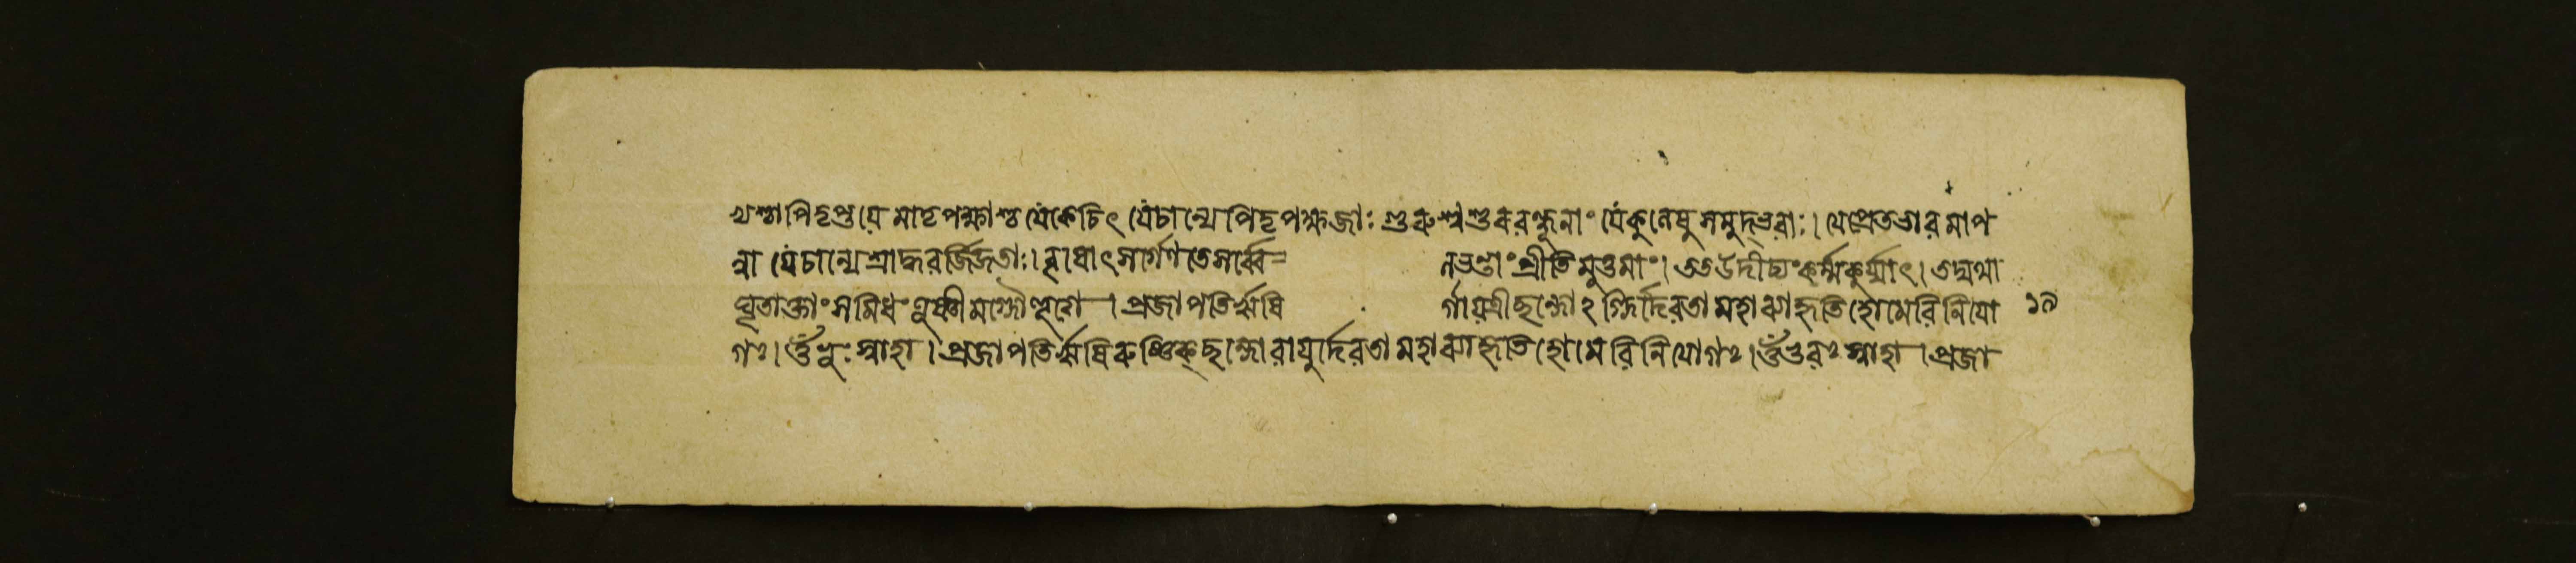 খশ্চাপিতৃপ্তয়ে মাতৃপক্ষাশ্চ যেকেচিৎ যেচান্যেপিতৃপক্ষজাঃ গুরুশ্বশুরবন্ধূনাং যেকুলেষু সমুদ্ভবাঃ। যেপ্রেতভাবমাপ
ন্না যেচান্যেশ্রাদ্ধবর্জিতাঃ। বৃষোৎসর্গেণ তেসর্ব্বে লভন্তাং প্রীতিমুত্তমাং। ততউদীচ্যং কর্ম্মকুর্য্যাৎ। তদ্যথা
ঘৃতাক্তাং সমিধং তূষ্ণীমগ্নৌহুত্বা। প্রজাপতির্ঋষি র্গায়ত্রীছন্দোঽগ্নির্দেবতা মহাব্যাহৃতিহোমেবিনিয়ো ১৯
গঃ। ওঁ ভূঃ স্বাহা। প্রজাপতির্ঋষিরুষ্ণিক্ছন্দোবায়ুর্দেবতা মহাব্যাহৃতিহোমেবিনিয়োগঃ। ওঁ ভুবঃ স্বাহা। প্রজা